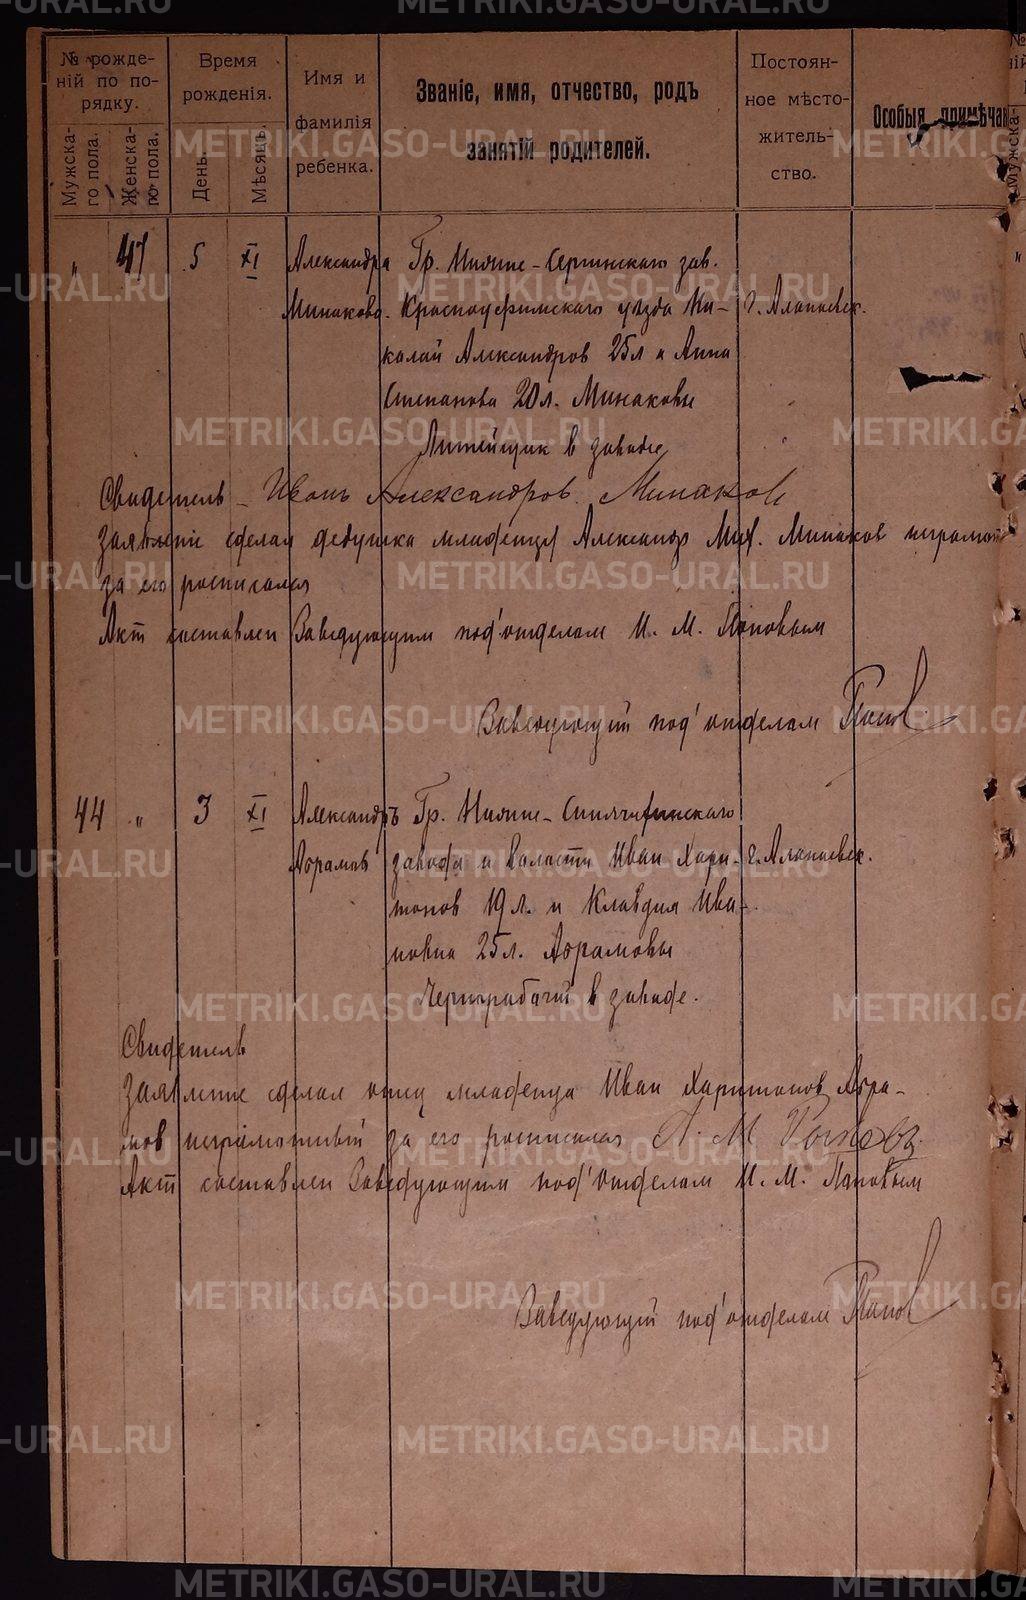 № рожде-
ній по по-
рядку.
Мужска-
го пола.
Женска-
го пола.
Время
рожденія.
День.
Мѣсяцъ.
Имя и
фамилія
ребенка.
Званіе, имя, отчество, родъ
занятій родителей.
Постоян-
ное мѣсто-
житель-
ство.
Особыя примѣчан
" 47 5 XI Александра Гр. Нижне-Сергинскаго зав.
Минакова. Красноуфимскаго уѣзда Ни- г. Алапаевск.
колай Александров 25 л и Анна
Степанова 20 л. Минаковы
Литейщик в заводе
Свидетель - Иванъ Александров Минаков
Заявление сделал дедушка младенца Александр Мих. Минаков неграмот
за его росписался
Акт составлен Заведующим под'отделом И. М. Поповым
Заведующий под'отделом Попов
44 " 3 XI Александръ Гр. Нижне-Синячихинскаго
Абрамов завода и волости Иван Хари- г. Алапаевск.
тонов 19 л. и Клавдия Ива-
новна 25 л. Абрамовы
Чернорабочий в заводе.
Свидетель
Заявление сделал отец младенца Иван Харитонов Абра-
мов неграмотный за его росписался А. М.
Акт составлен Заведующим под'отделом И. М. Поповым
Заведующий под'отделом Попов
METRIKI.GASO-URAL.RU